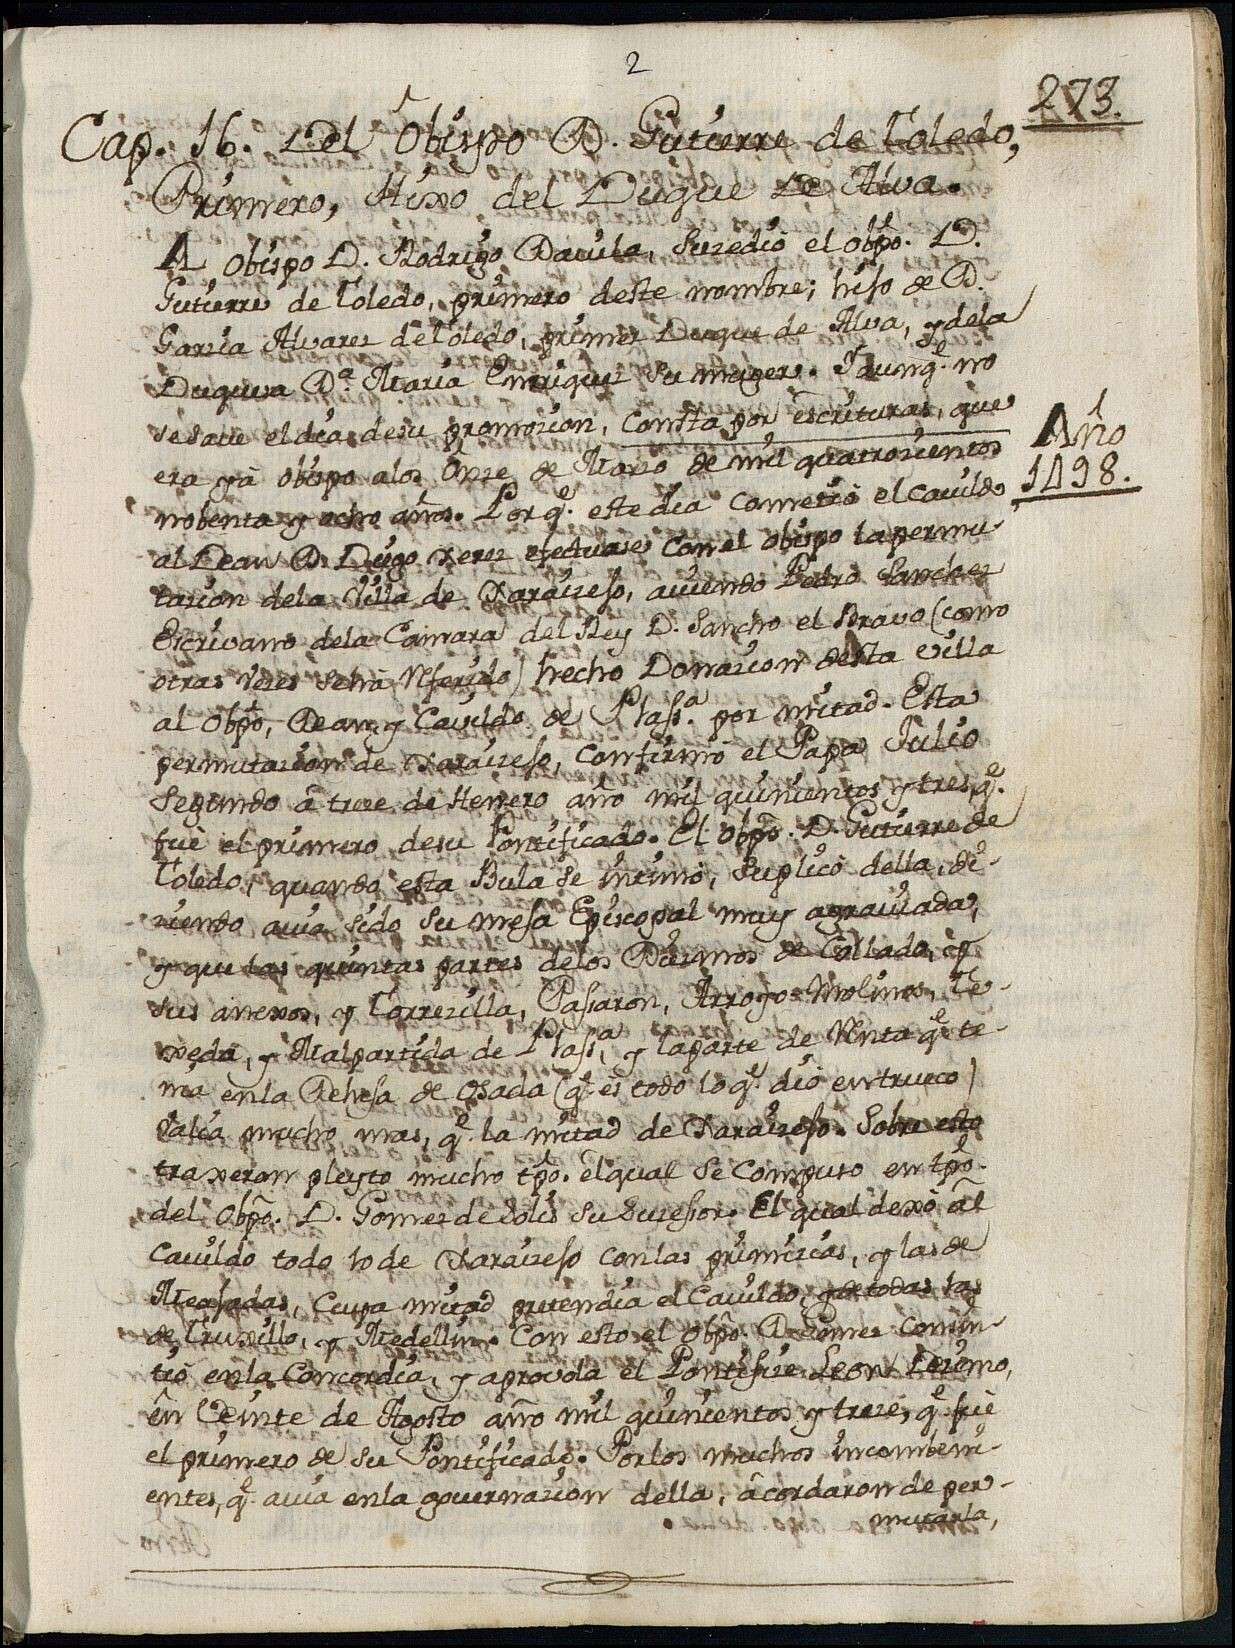 2
273.
Cap. 16. Del Obispo D. Gutierre de Toledo,
Primero, Hixo del Duque de Alva.
Al Obispo D. Rodrigo Davila, suzedió el Obpo. D.
Gutierre de Toledo, primero deste nombre; hiso de D.
Garzia Alvarez de Toledo, primer Duque de Alva, y dela
Duquesa Da. Maria Enriquez su muger. Y aunqe. no
se save el dia desu promozion, consta por escrituras, que
era yà obispo alos Onze de Marzo de mil quatrozientos
Año
1498.
nobenta y ocho años. Porqe. este dia cometiò el Cavildo
al Dean D. Diego Xerez efectuase con el obispo la permu-
tazion dela Villa de Xaraizeso, aviendo Pedro Sanchez
Escrivano dela Camara del Rey D. Sancho el Bravo (como
otras vezes se hà referido) hecho Donazion desta villa
al Obpo, Dean, y Cavildo de Plasa. por mitad. Esta
permutazion de Xaraizeso, confirmò el Papa Julio
Segundo â treze de Henero año mil quinientos y tres, qe.
fuè el primero desu Pontificado. El Obpo. D. Gutierre de
Toledo, quando esta Bula se intimò, suplicò della, di-
ziendo avia sido su mesa Episcopal muy agraviada,
y que las quintas partes delos Diezmos de Collado, y
sus anexos, y Torrezilla, Pasaron, Arroyo-Molinos, Te-
xeda, y Malpartida de Plasa, y la parte de Renta qe te-
nia enla Dehesa de Osada (qe es todo lo qe. diò en trueco)
Valia mucho mas, qe la mitad de Xaraizeso. Sobre esto
traxeron pleyto mucho tpo. el qual se compuso en tpo.
del Obpo. D. Gomez de Solis su suzesor. El qual dexò al
Cavildo todo lo de Xaraizeso con las primizias, y las de
Measadas, cuya mitad pretendia el Cavildo, y de todas las
de Truxillo, y Medellin. Con esto el Obpo. D. Gomez consin-
tiò enla Concordia, y aprovola el Pontifize Leon Dezimo,
en Veinte de Agosto año mil quinientos y treze, qe fuè
el primero de su Pontificado. Por los muchos incombeni-
entes, qe. avia enla governazion della, âcordaron de per-
mutarla,